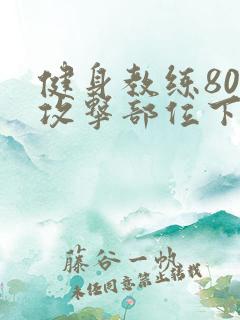 健身教练80
攻擊部位下
藤谷一帆
未经同意禁止转载